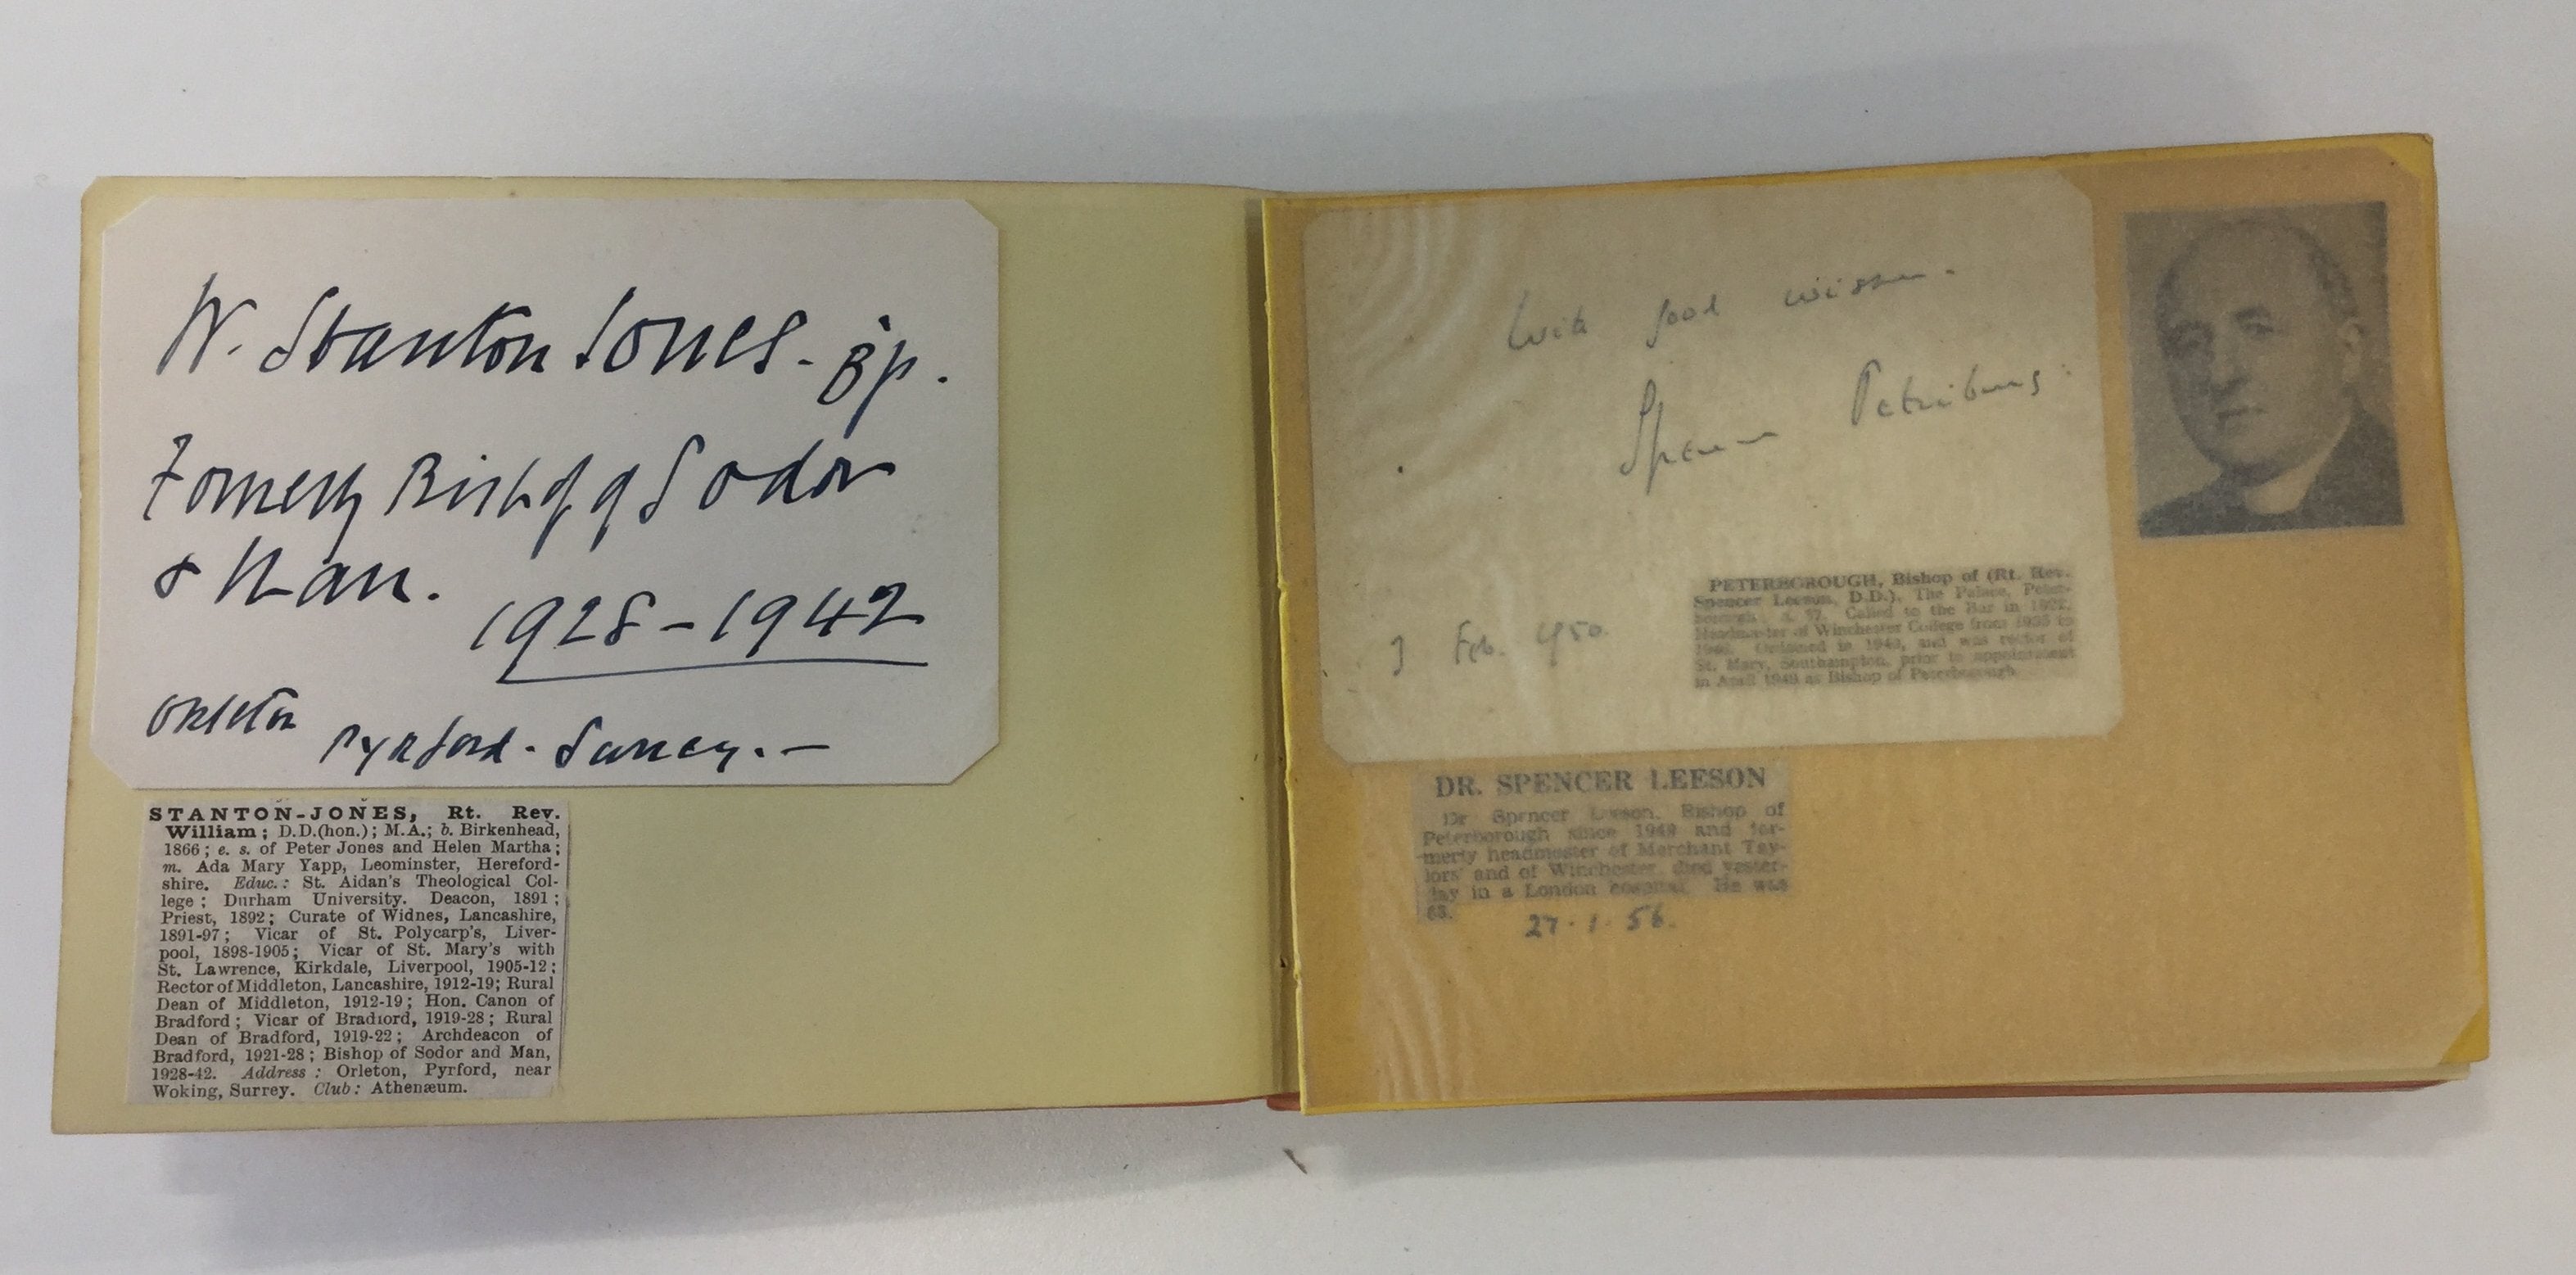 W. Stanton Jones - Bp.
Formerly Bishop of Sodor
& Man.
1928-1942
Orleton
Pyrford - Surrey. -
STANTON-JONES, Rt. Rev.
William; D.D.(hon.); M.A.; b. Birkenhead,
1866; e. s. of Peter Jones and Helen Martha;
m. Ada Mary Yapp, Leominster, Hereford-
shire. Educ.: St. Aidan's Theological Col-
lege; Durham University. Deacon, 1891;
Priest, 1892; Curate of Widnes, Lancashire,
1891-97; Vicar of St. Polycarp's, Liver-
pool, 1898-1905; Vicar of St. Mary's with
St. Lawrence, Kirkdale, Liverpool, 1905-12;
Rector of Middleton, Lancashire, 1912-19; Rural
Dean of Middleton, 1912-19; Hon. Canon of
Bradford; Vicar of Bradford, 1919-28; Rural
Dean of Bradford, 1919-22; Archdeacon of
Bradford, 1921-28; Bishop of Sodor and Man,
1928-42. Address: Orleton, Pyrford, near
Woking, Surrey. Club: Athenæum.
With good wishes.
Spencer Petriburg:
Feb. 1950.
PETERBOROUGH, Bishop of (Rt. Rev.
Spencer Leeson, D.D.). The Palace, Peter-
borough. Called to the Bar in 1922.
Headmaster of Winchester College from 1935 to
1946. Ordained in 1940, and was rector of
St. Mary, Southampton, prior to appointment
in April 1949 as Bishop of Peterborough.
DR. SPENCER LEESON
Dr Spencer Leeson, Bishop of
Peterborough since 1949 and for-
merly headmaster of Merchant Tay-
lors' and of Winchester, died yester-
day in a London hospital. He was
63.
27.1.56.